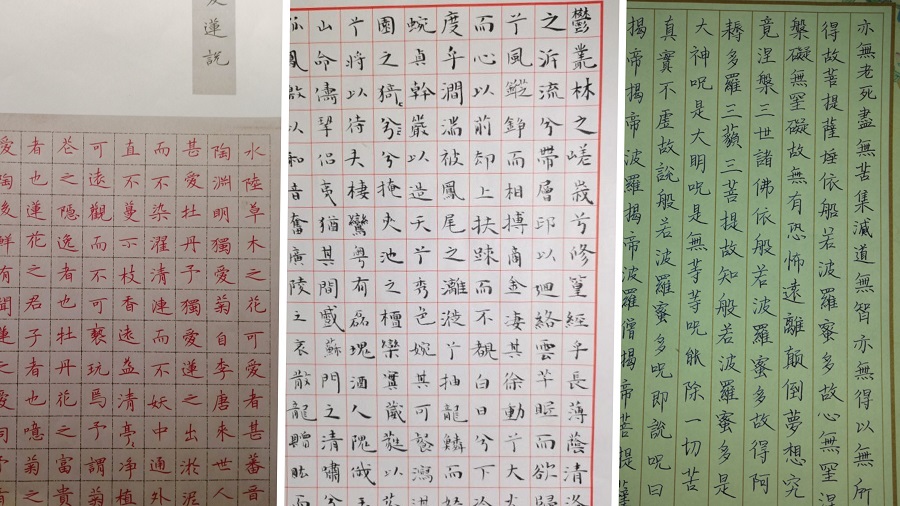 蓮說
水陸草木之花可愛者甚蕃晉
陶淵明獨愛菊自李唐來世人
甚愛牡丹予獨愛蓮之出淤泥
而不染濯清漣而不妖中通外
直不蔓不枝香遠益清亭々净植
可遠觀而不可褻玩焉予謂菊
花之隱逸者也牡丹花之富貴
者也蓮花之君子者也噫菊之
愛陶後鮮有聞蓮之愛同予
鬱叢林之嵯峩兮修篁經乎長薄蔭清洛
之沂流兮帶層邱以迴絡雲芊眠而欲歸
兮風鏦錚而相搏商金淒其徐動兮大
而心以前却上扶踈而不覩白日兮下
度乎澗湍被鳳尾之灕淞兮抽龍鱗而
蜿貞幹嚴以造天兮秀色婉其可餐瀉
園之猗々兮掩夾池之檀欒冀葳蕤以
兮將以待夫棲鸞粵有磊瑰酒人隗俄
山命儔挈侶夷猶其間感蘇門之清嘯兮
鳳啟以和音奮廣陵之哀散龍
亦無老死盡無苦集滅道無智亦無得以無所
得故菩提薩埵依般若波羅蜜多故心無罣涅
槃礙無罣礙故無有恐怖遠離顛倒夢想究
竟涅槃三世諸佛依般若波羅蜜多故得阿
耨多羅三藐三菩提故知般若波羅蜜多是
大神咒是大明咒是無等等咒能除一切苦
真實不虛故說般若波羅蜜多咒即說咒曰
揭帝揭帝波羅揭帝波羅僧揭帝菩提